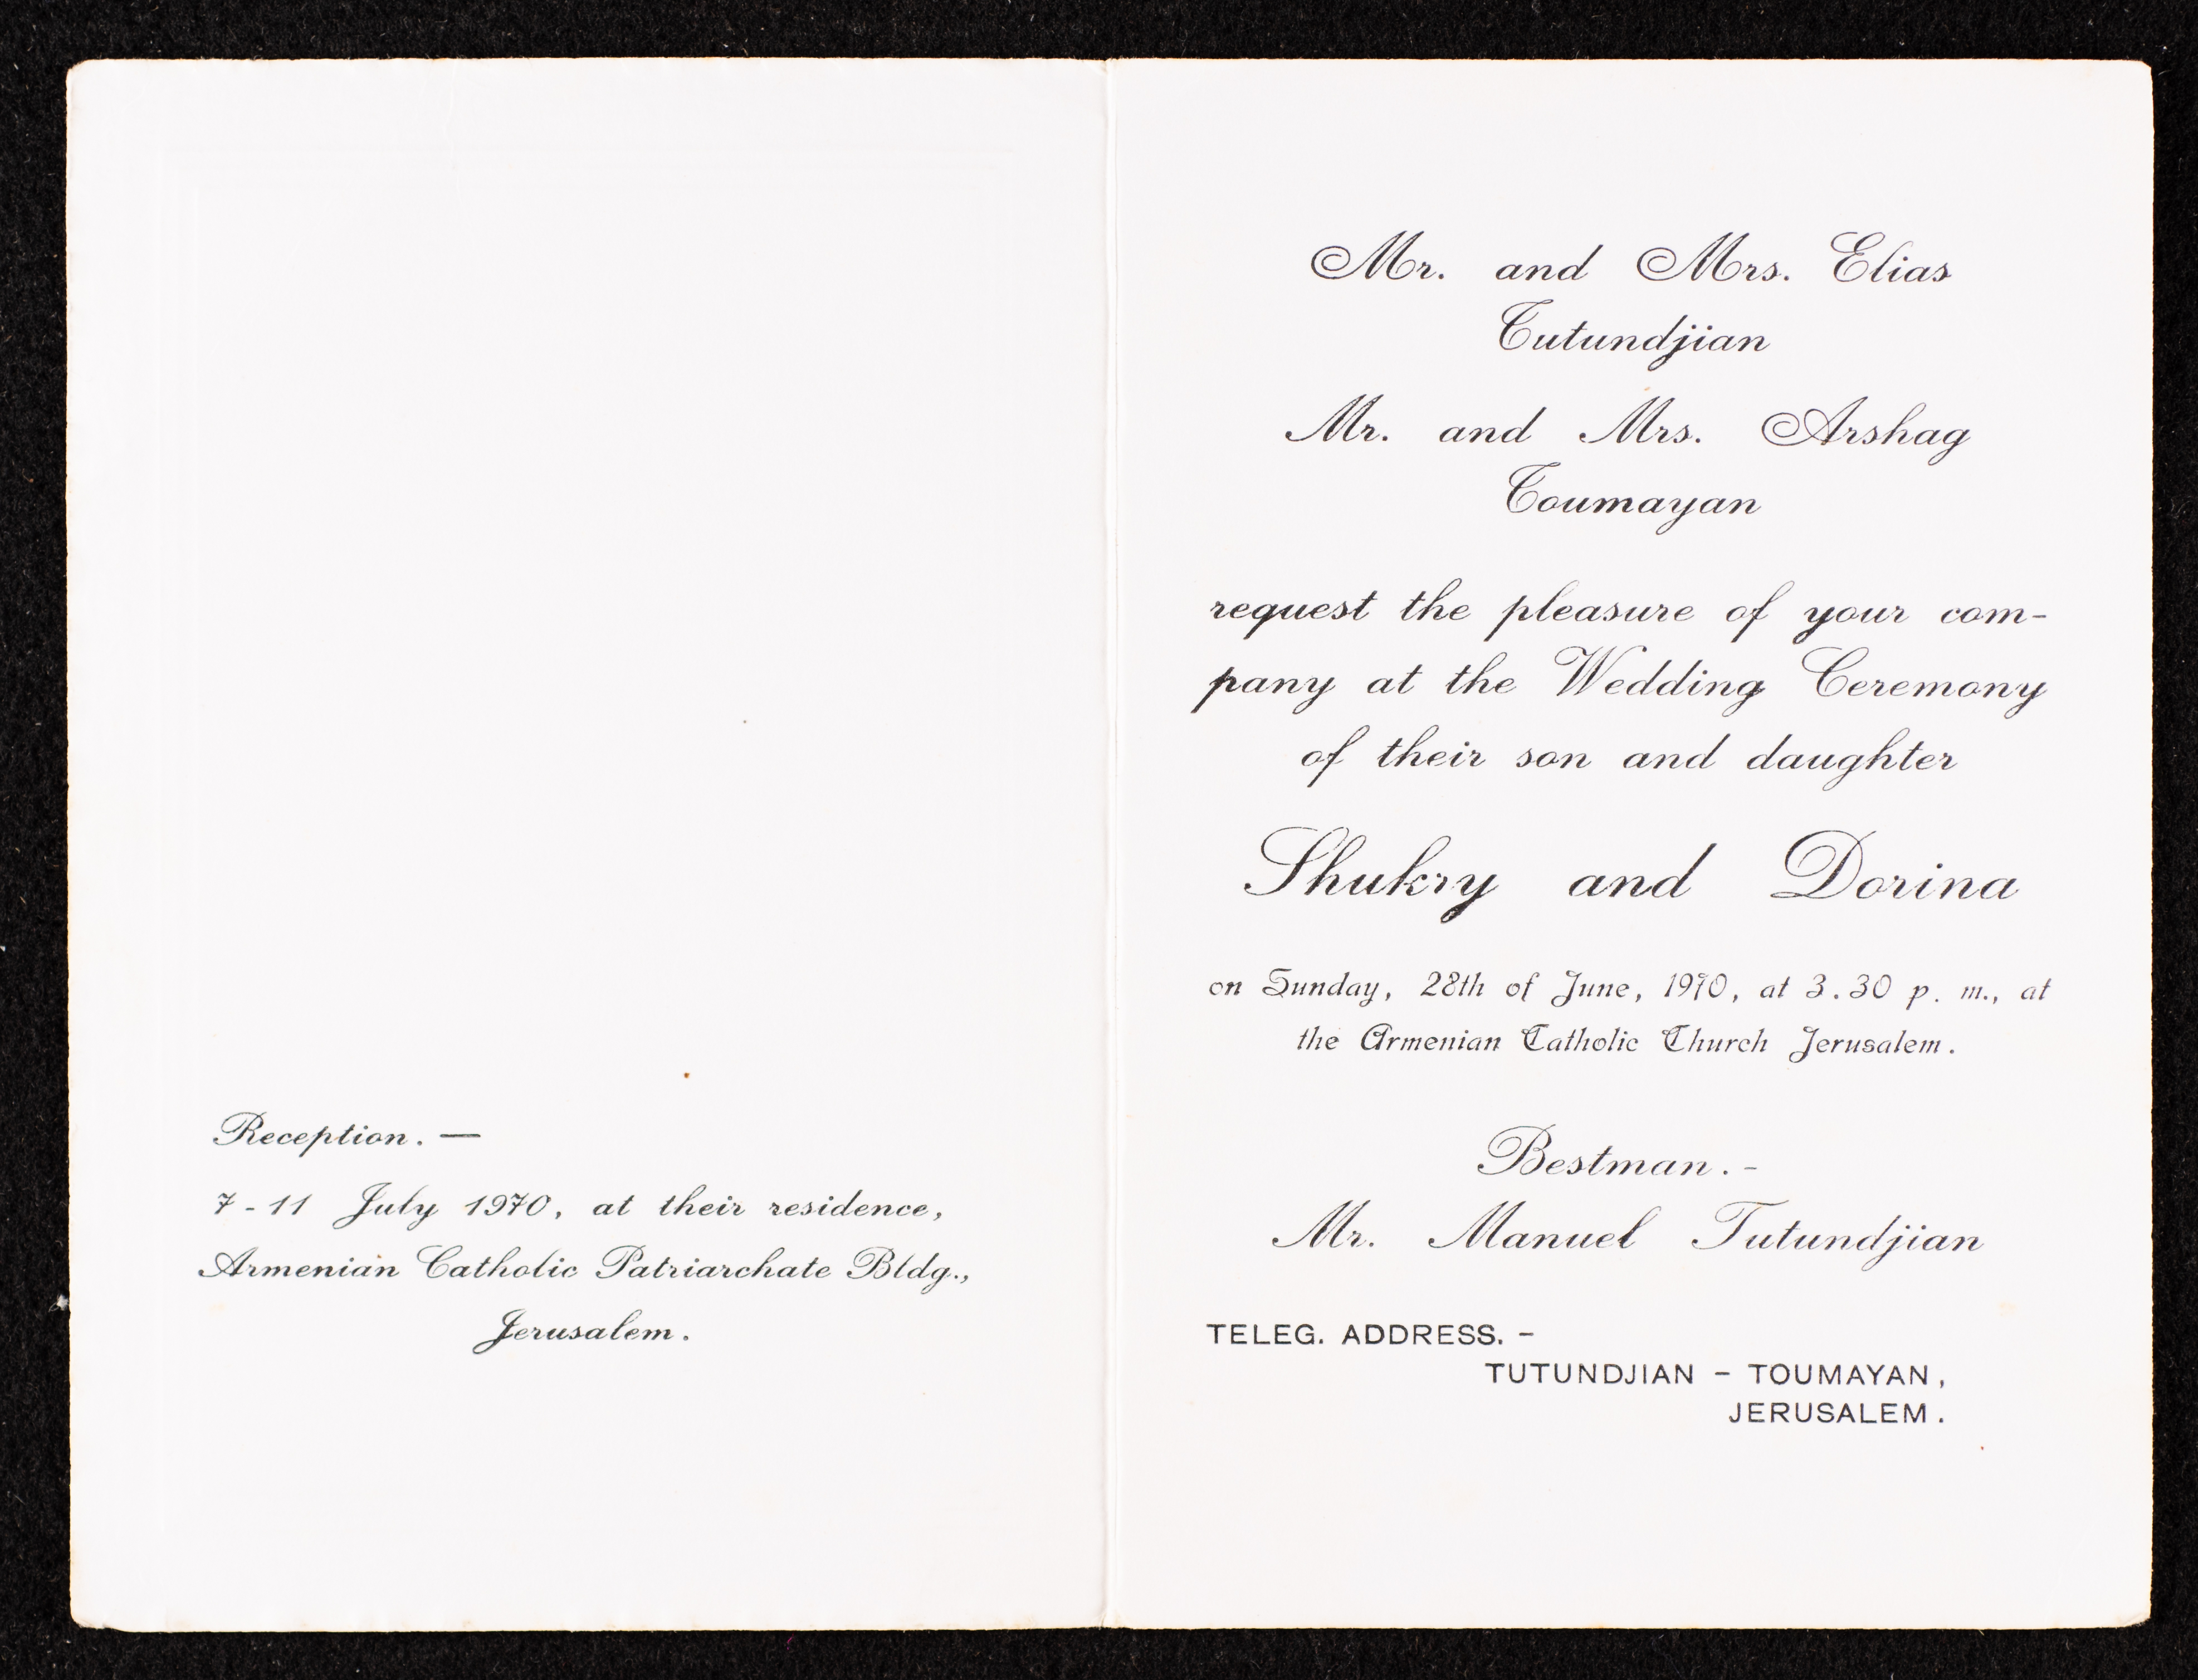 Reception. —
7 - 11 July 1970, at their residence,
Armenian Catholic Patriarchate Bldg.,
Jerusalem.
Mr. and Mrs. Elias
Tutundjian
Mr. and Mrs. Arshag
Toumayan
request the pleasure of your com-
pany at the Wedding Ceremony
of their son and daughter
Shukry and Dorina
on Sunday, 28th of June, 1970, at 3.30 p. m., at
the Armenian Catholic Church Jerusalem.
Bestman. -
Mr. Manuel Tutundjian
TELEG. ADDRESS. -
TUTUNDJIAN - TOUMAYAN,
JERUSALEM.